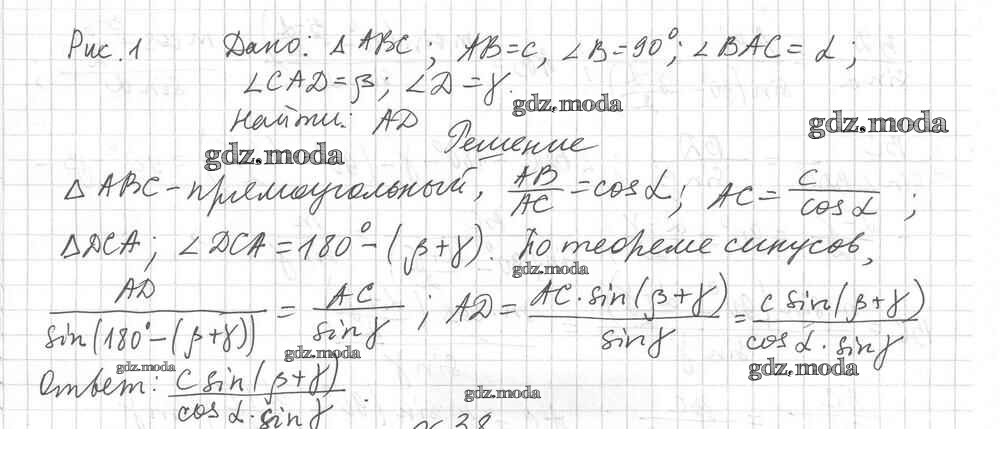 Рис. 1 Дано: △ ABC; AB=c, ∠B=90°; ∠BAC=α;
∠CAD=β; ∠D=γ.
gdz.moda
Найти: AD
gdz.moda
Решение
gdz.moda
△ ABC - прямоугольный, AB/AC = cos α; AC = c/cos α;
△DCA; ∠DCA = 180° - (β+γ). По теореме синусов,
gdz.moda
AD/sin(180° - (β+γ)) = AC/sin γ; AD = AC·sin(β+γ)/sin γ = c sin(β+γ)/cos α · sin γ
gdz.moda
gdz.moda
gdz.moda
Ответ: c sin(β+γ)/cos α · sin γ.
gdz.moda